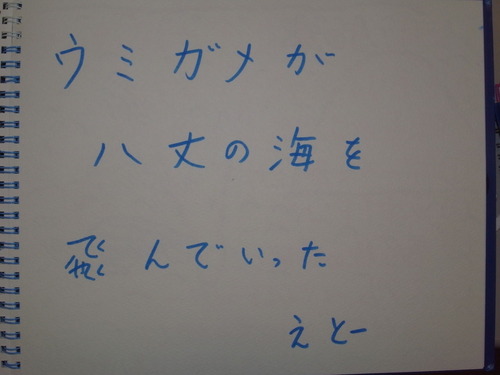 ウミガメが
八丈の海を
飛んでいった
えとー